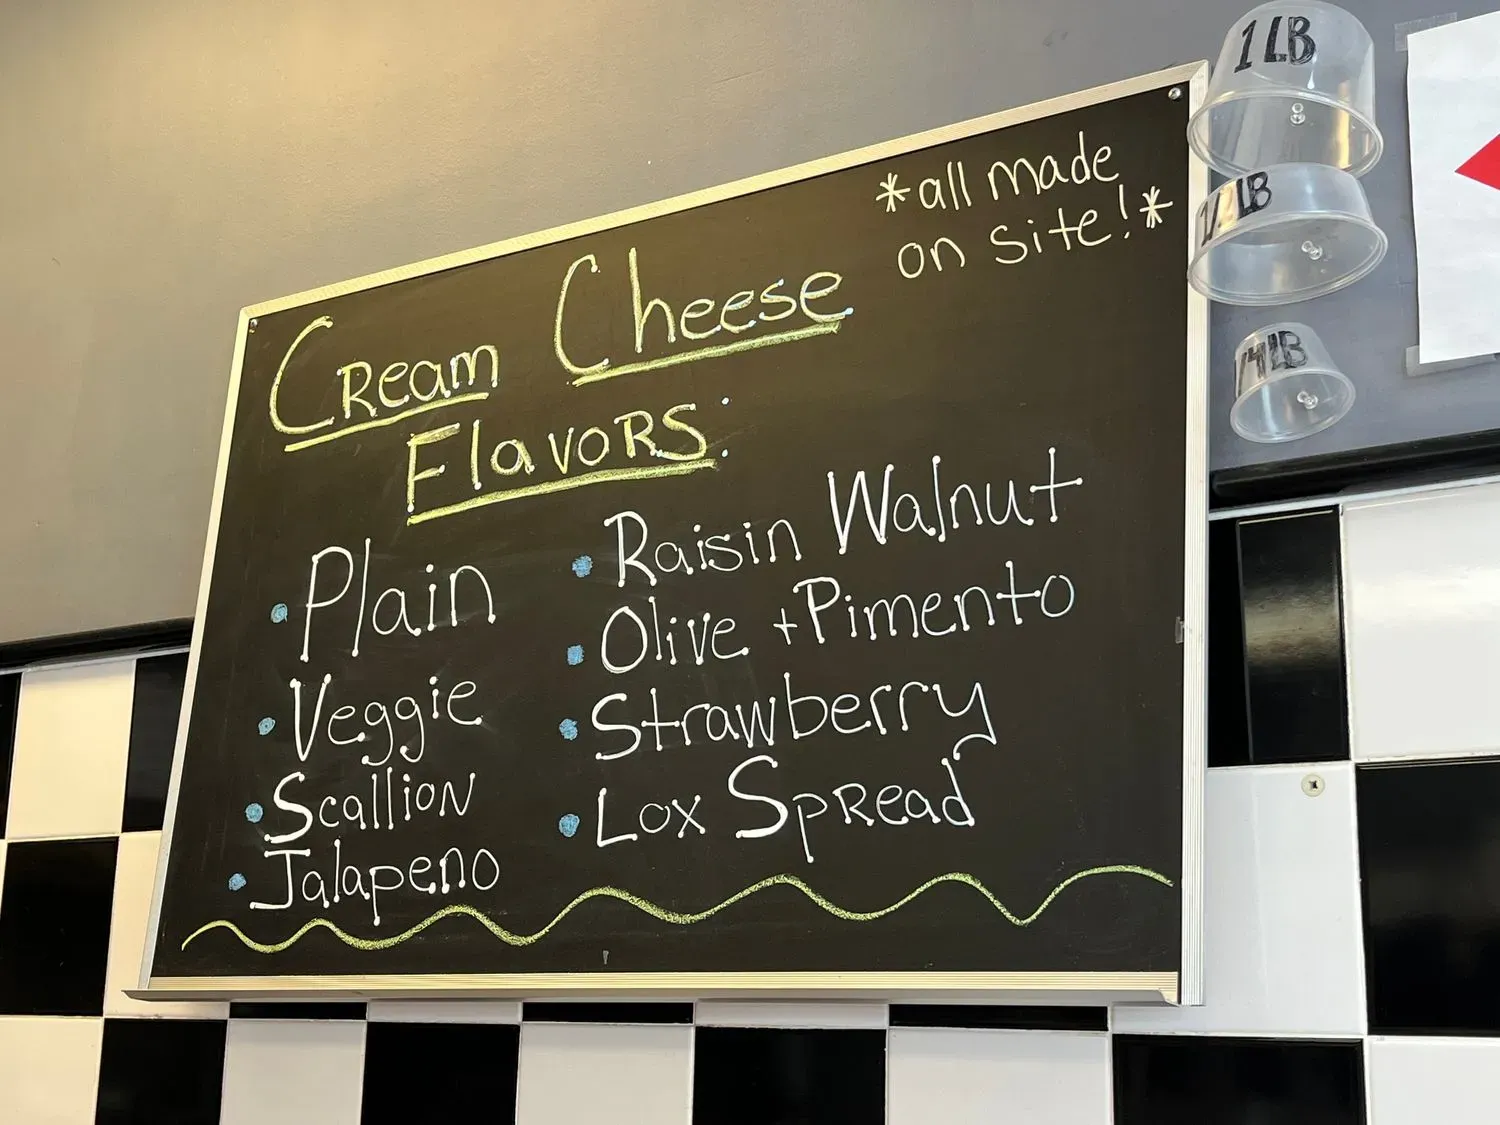 *all made
on site!*
Cream Cheese
Flavors:
• Plain
• Veggie
• Scallion
• Jalapeno
• Raisin Walnut
• Olive + Pimento
• Strawberry
• Lox Spread
1 LB
LB
1/4 LB